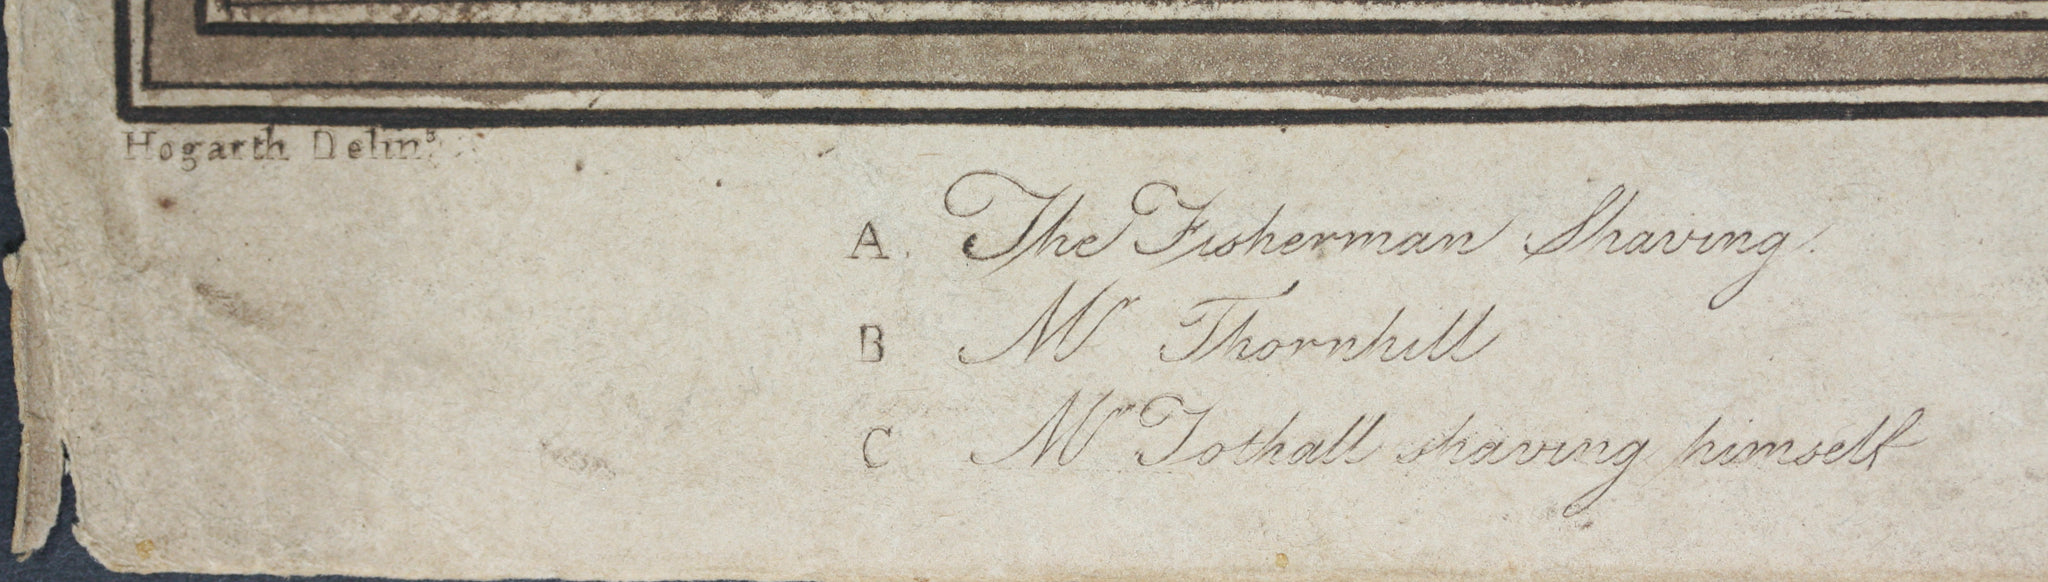 Hogarth Delin^s
A. The Fisherman Shaving.
B Mr Thornhill
C Mr Tothall shaving himself